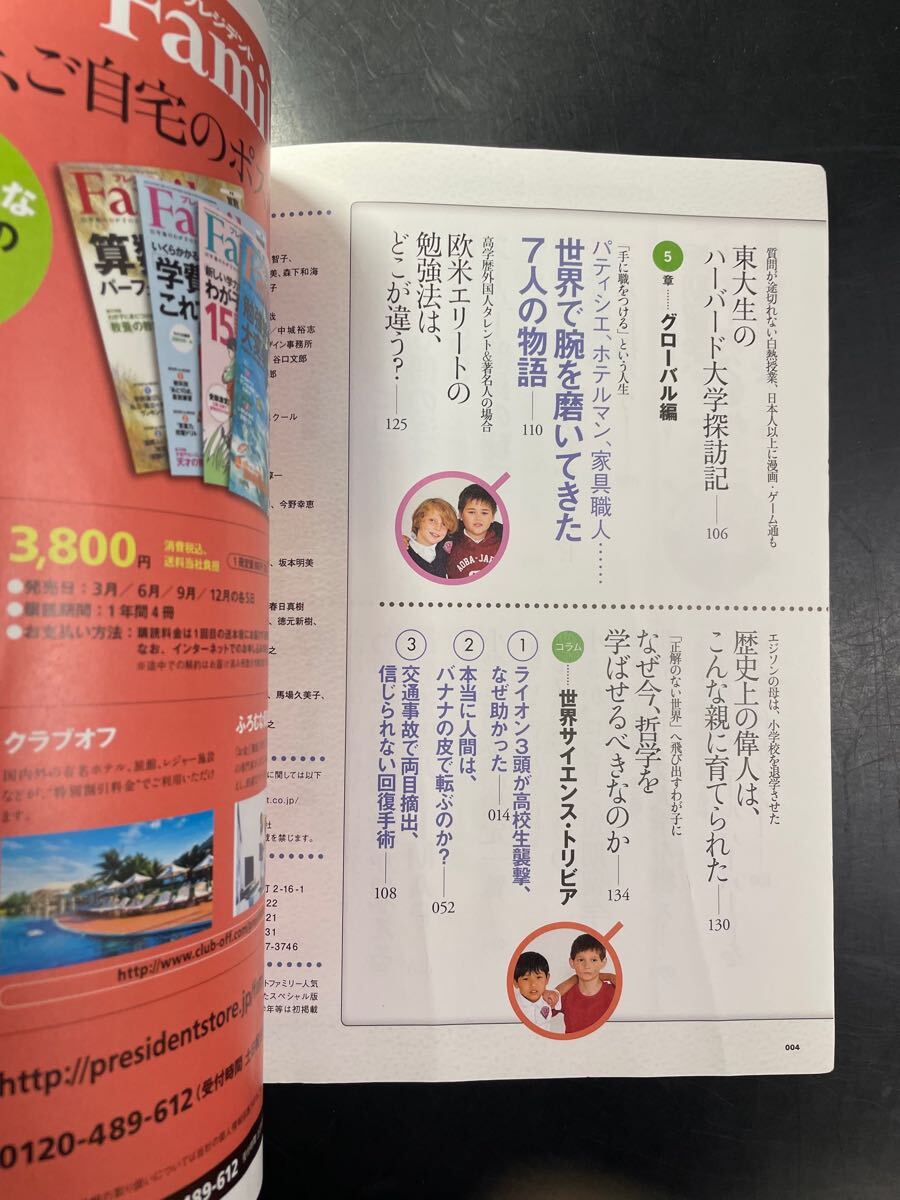 プレジデント
Fami
、ご自宅のポス
な
の
3,800円
消費税込、
送料当社負担
●発売日：3月／6月／9月／12月の各5日
●購読期間：1年間4冊
●お支払い方法：購読料金は1回目の送本後に
なお、インターネットでのお申し込み
クラブオフ
国内外の有名ホテル、旅館、レジャー施設
などが、“特別割引料金”でご利用いただけ
ます。
http://www.club-off.com
http://presidentstore.jp
0120-489-612（受付時間
489-612
智子、
美、森下和海
子
哉
／中城裕志
ザイン事務所
谷口文郎
クール
享一
、今野幸恵
、坂本明美
春日真樹
、徳元新樹、
之
、馬場久美子、
之
に関しては以下
t.co.jp/
社
載を禁じます。
町 2-16-1
22
21
31
7-3746
トファミリー人気
たスペシャル版
年等は初掲載
質問が途切れない白熱授業、日本人以上に漫画・ゲーム通も
東大生の
ハーバード大学探訪記—106
5章……グローバル編
「手に職をつける」という人生
パティシエ、ホテルマン、家具職人……
世界で腕を磨いてきた
7人の物語—110
高学歴外国人タレント&著名人の場合
欧米エリートの
勉強法は、
どこが違う？—125
AOBA-JA
エジソンの母は、小学校を退学させた
歴史上の偉人は、
こんな親に育てられた—130
「正解のない世界」へ飛び出すわが子に
なぜ今、哲学を
学ばせるべきなのか—134
コラム……世界サイエンス・トリビア
1 ライオン3頭が高校生襲撃、
なぜ助かった—014
2 本当に人間は、
バナナの皮で転ぶのか？—052
3 交通事故で両目摘出、
信じられない回復手術—108
004